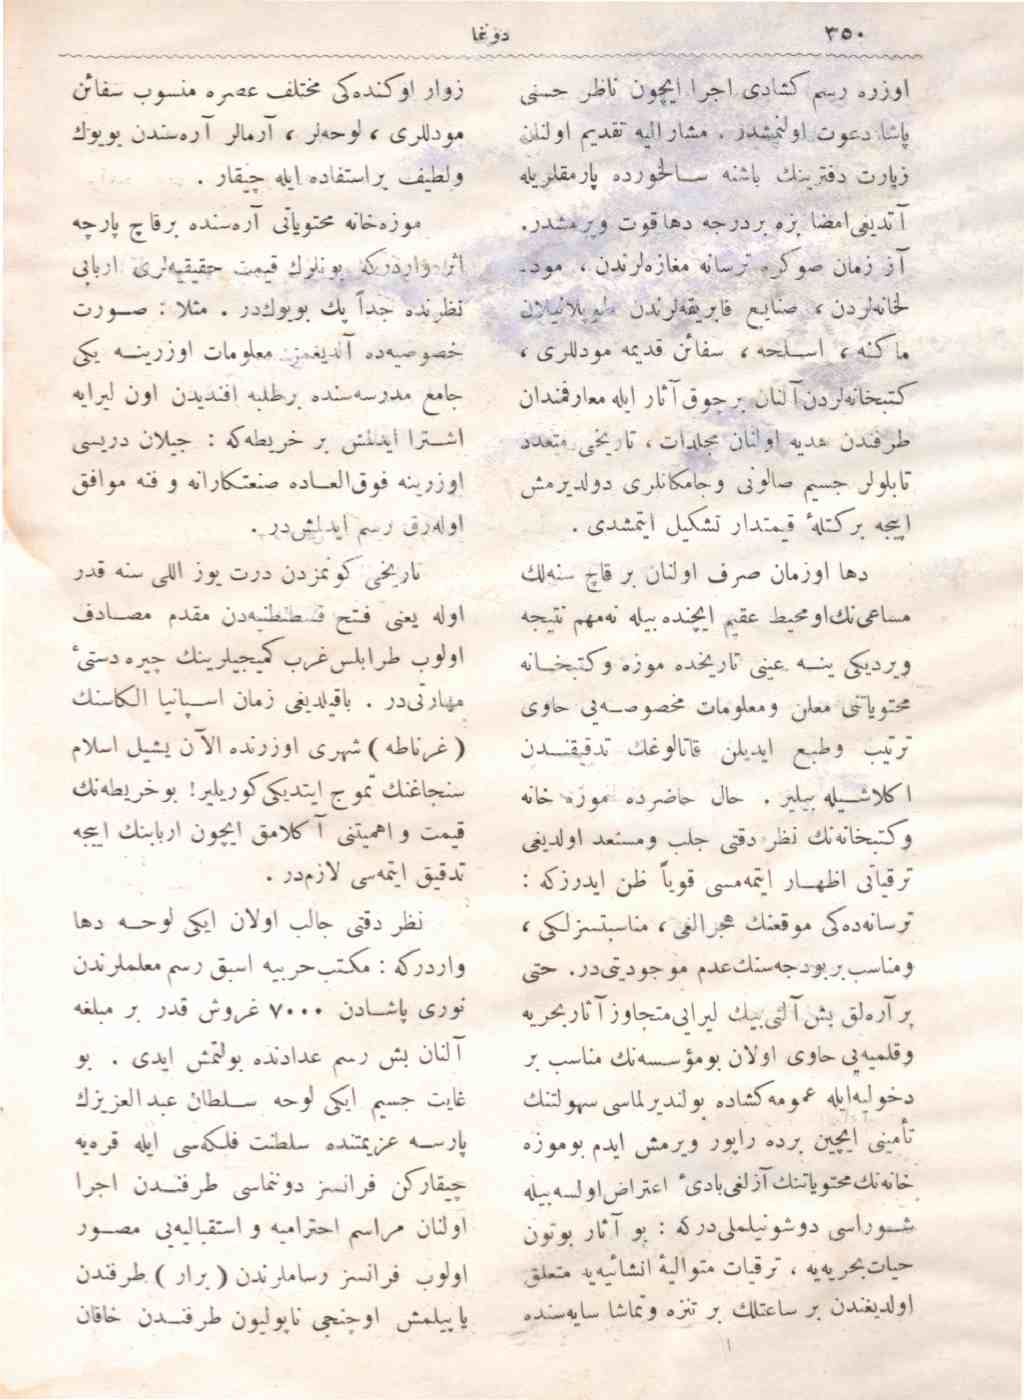 ٣٥٠
دونما
اوزره رسم كشادى اجرا ايچون ناظر حسنى
پاشا دعوت اولنمشدر . مشاراليه تقديم اولنان
زيارت دفترينك باشنه ســالخورده پارمقلريله
آتديغى امضا بزه بر درجه دها قوت ويرمشدر.
آز زمان صوكره ترسانه مغازه‌لرندن ، مود-
لخانه‌لردن ، صنايع فابريقه‌لرندن طوپلانيلان
ماكنه ، اســلحه ، سفائن قديمه موداللرى ،
كتبخانه‌لردن آلنان برچوق آثار ايله معارفمندان
طرفندن هديه اولنان مجلدات ، تاريخى متعدد
تابلولر جسيم صالونى وجامكانلرى دولديرمش
اييجه بر كتلهٔ قيمتدار تشكيل ايتمشدى .
دها اوزمان صرف اولنان بر قاچ سنه‌لك
مساعى‌نك او محيط عقيم ايچنده بيله نه مهم نتيجه
ويرديكى ينــه عينى تاريخده موزه وكتبخــانه
محتوياتنى معلن ومعلومات مخصوصــه‌يى حاوى
ترتيب وطبع ايديلن قاتالوغك تدقيقنــدن
اكلاشــيله بيلير . حال حاضرده موزه خانه
وكتبخانه‌نك نظر دقتى جلب ومستعد اولديغى
ترقياتى اظهــار ايتمه‌مسى قوياً ظن ايدرزكه :
ترسانه‌ده‌كى موقعنك هجرالغى ، مناسبتسزلكى ،
ومناسب بر بودجه‌سنك عدم موجوديتى‌در. حتى
بر آره‌لق بش آلتى بيك ليرايى متجاوز آثار بحريه
وقلميه‌يى حاوى اولان بو مؤسسه‌نك مناسب بر
دخوليه ايله عمومه كشاده بولنديرلماسى سهولتنك
تأمينى ايچين برده راپور ويرمش ايدم بو موزه
خانه‌نك محتوياتنك آزلغى بادىٔ اعتراض اولسه بيله
شــوراسى دوشونيلملى‌دركه : بو آثار بوتون
حيات بحريه‌يه ، ترقيات متواليهٔ انشائيه‌يه متعلق
اولديغندن بر ساعتلك بر تنزه وتماشا سايه‌سنده
زوار اوكنده‌كى مختلف عصره منسوب سفائن
موداللرى ، لوحه‌لر ، آرمالر آره‌سندن بويوك
ولطيف بر استفاده ايله چيقار .
موزه‌خانه محتوياتى آره‌سنده بر قاچ پارچه
اثر واردركه بونلرك قيمت حقيقيه‌لرى اربابى
نظرنده جداً پك بويوك‌در . مثلا : صــورت
خصوصيه‌ده آلديغمز معلومات اوزرينــه يكى
جامع مدرسه‌سنده بر طلبه افنديدن اون ليرايه
اشــترا ايدلمش بر خريطه‌كه : جيلان دريسى
اوزرينه فوق‌العــاده صنعتكارانه و فنه موافق
اوله‌رق رسم ايدلمش‌در .
تاريخى كونمزدن درت يوز اللى سنه قدر
اوله يعنى فتح قسطنطنيه‌دن مقدم مصــادف
اولوب طرابلس غرب كميجيلرينك چيره دستىٔ
مهارتى‌در . باقيلديغى زمان اســپانيا الكاسنك
( غرناطه ) شهرى اوزرنده الآن يشيل اسلام
سنجاغنك تموج ايتديكى كوريلير! بو خريطه‌نك
قيمت و اهميتنى آكلامق ايچون اربابنك اييجه
تدقيق ايتمه‌سى لازم‌در .
نظر دقتى جالب اولان ايكى لوحــه دها
واردركه : مكتب حربيه اسبق رسم معلملرندن
نورى پاشــادن ٧٠٠٠ غروش قدر بر مبلغه
آلنان بش رسم عدادنده بولنمش ايدى . بو
غايت جسيم ايكى لوحه ســلطان عبدالعزيزك
پارســه عزيمتنده سلطنت فلكه‌سى ايله قره‌يه
چيقاركن فرانسز دونماسى طرفنــدن اجرا
اولنان مراسم احتراميه و استقباليه‌يى مصــور
اولوب فرانسز رساملرندن ( برار ) طرفندن
ياپيلمش اوچنجى ناپوليون طرفنــدن خاقان